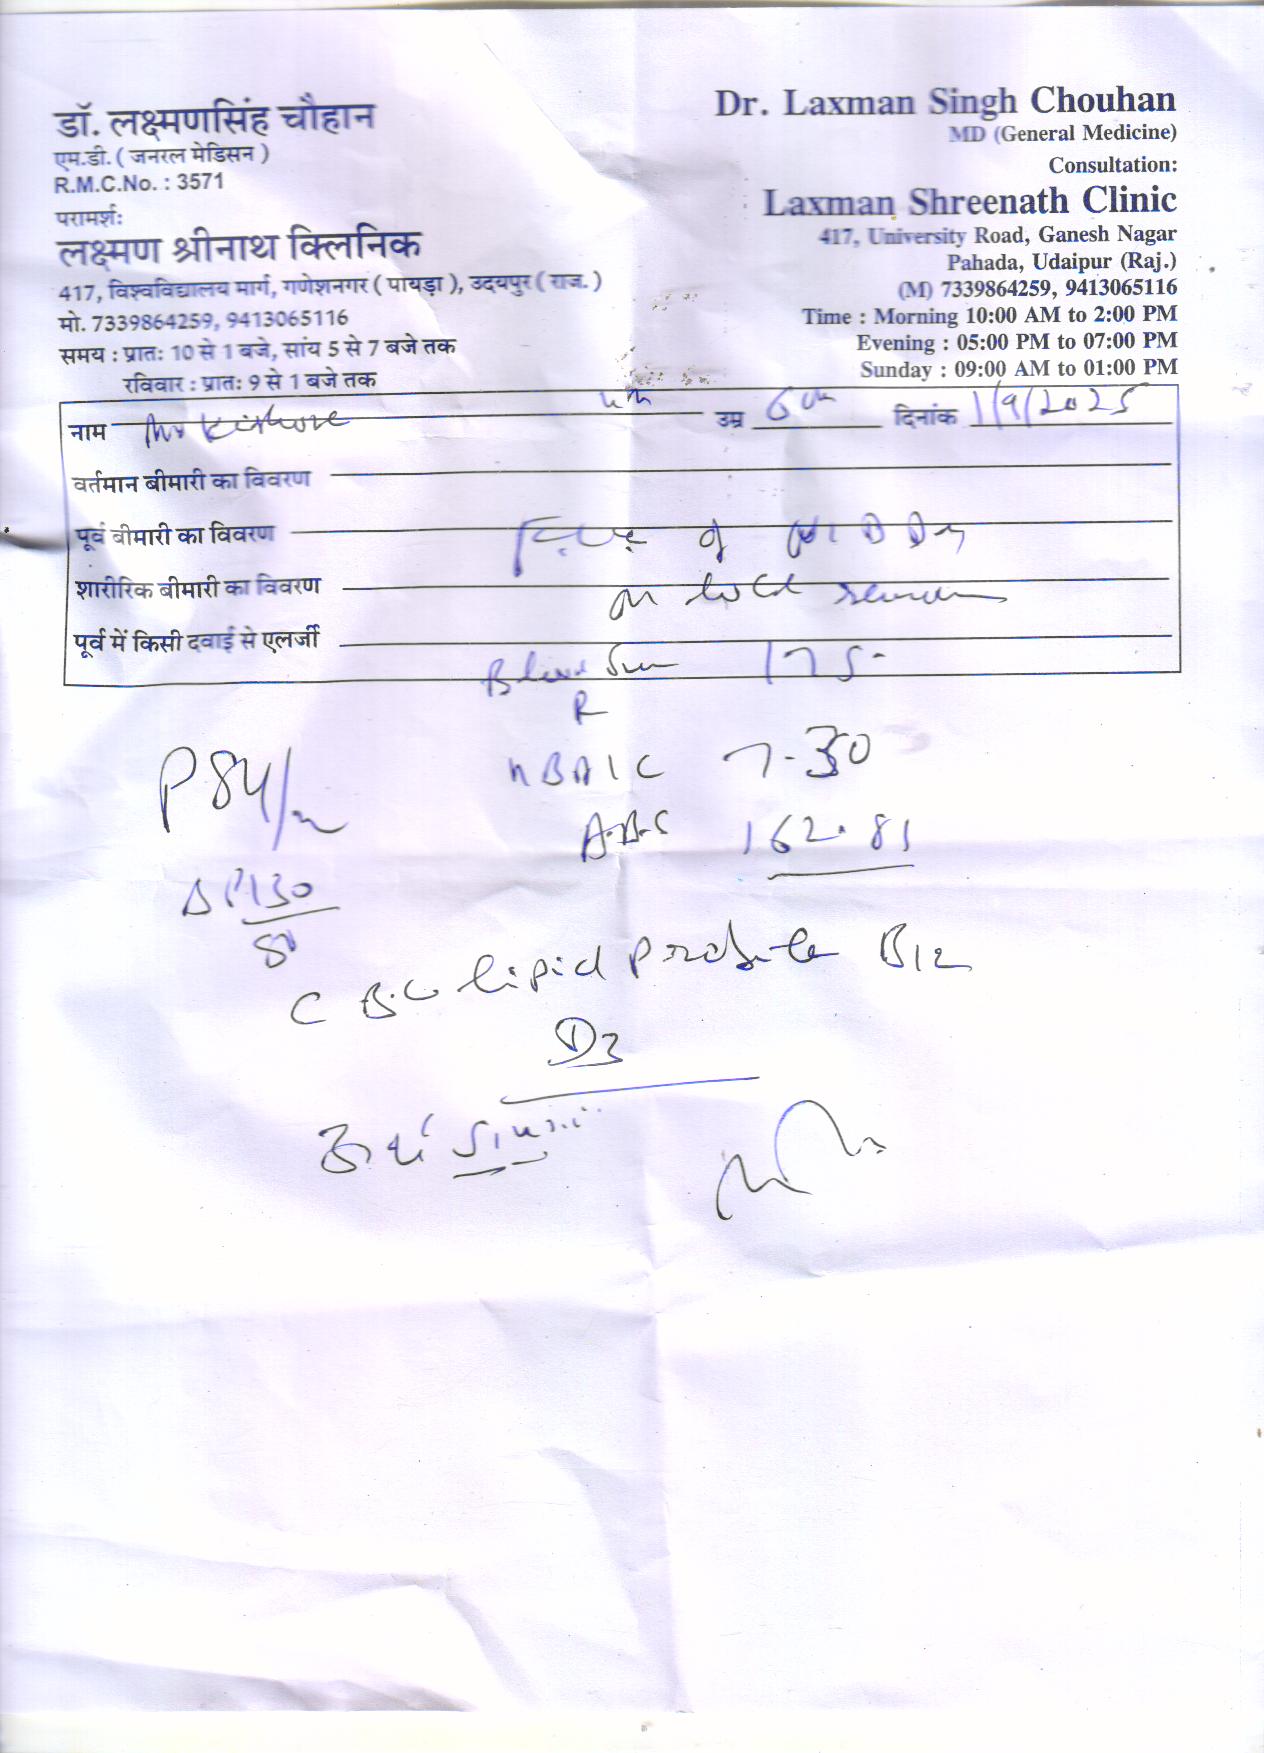 डॉ. लक्ष्मणसिंह चौहान
एम.डी. ( जनरल मेडिसन )
R.M.C.No. : 3571
परामर्श:
लक्ष्मण श्रीनाथ क्लिनिक
417, विश्वविद्यालय मार्ग, गणेशनगर ( पायड़ा ), उदयपुर ( राज. )
मो. 7339864259, 9413065116
समय : प्रातः 10 से 1 बजे, सांय 5 से 7 बजे तक
रविवार : प्रातः 9 से 1 बजे तक
Dr. Laxman Singh Chouhan
MD (General Medicine)
Consultation:
Laxman Shreenath Clinic
417, University Road, Ganesh Nagar
Pahada, Udaipur (Raj.)
(M) 7339864259, 9413065116
Time : Morning 10:00 AM to 2:00 PM
Evening : 05:00 PM to 07:00 PM
Sunday : 09:00 AM to 01:00 PM
नाम Mr Kishore उम्र दिनांक 1/9/2025
वर्तमान बीमारी का विवरण
पूर्व बीमारी का विवरण of
शारीरिक बीमारी का विवरण
पूर्व में किसी दवाई से एलर्जी
Blood 175
R
HBA1C 7.30
A.B.G 162.81
P 84/m
BP 130
80
C B.C lipid profile B12
D3